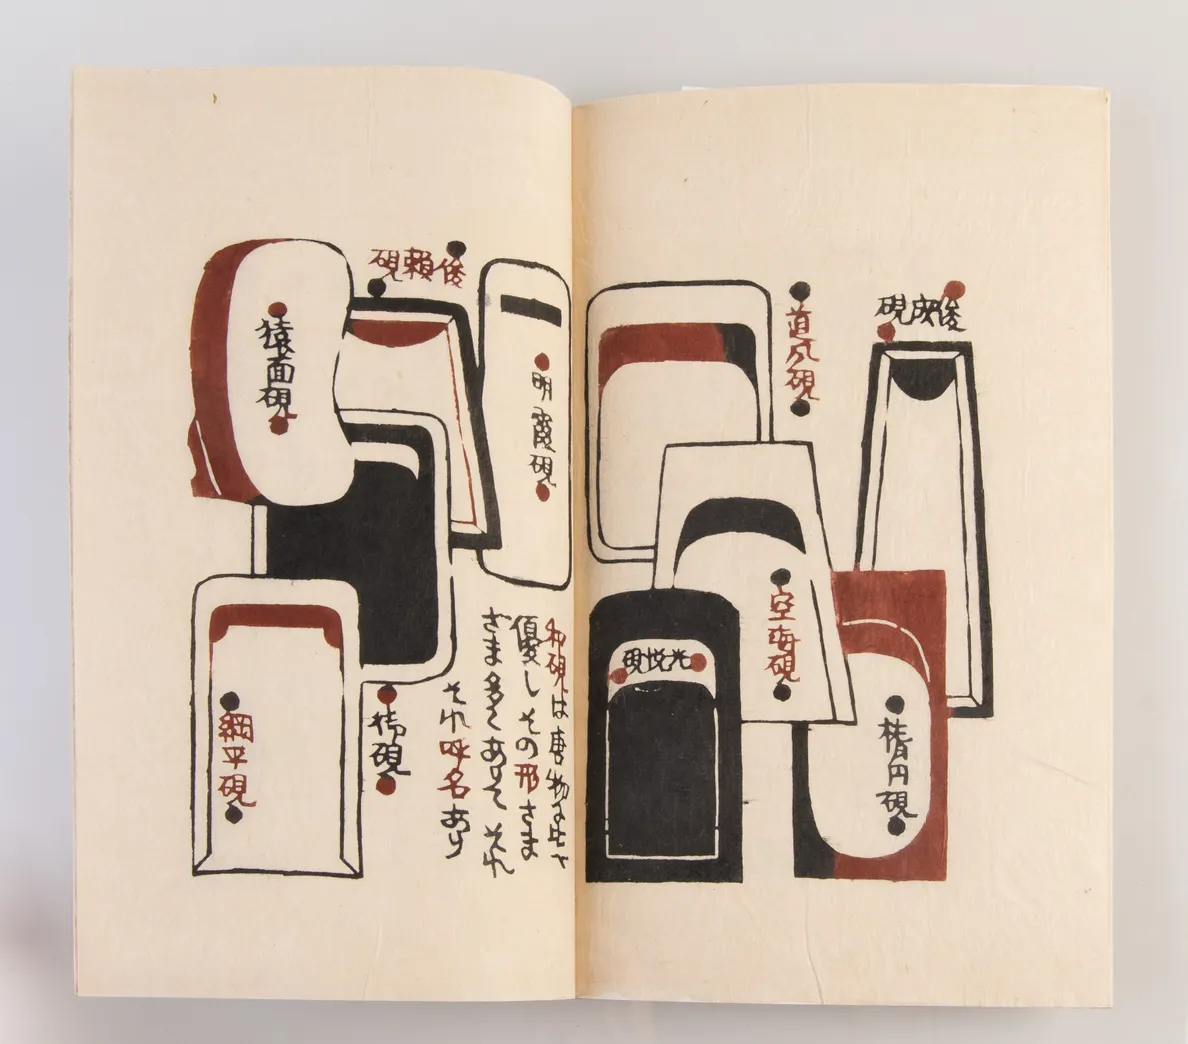 俊成硯
道风硯
空海硯
楕円硯
光悦硯
和硯は唐物に比べ
優しその形さま
ざま多くありて それ
それ呼名あり
明霞硯
俊頼硯
猿面硯
硯
綱平硯